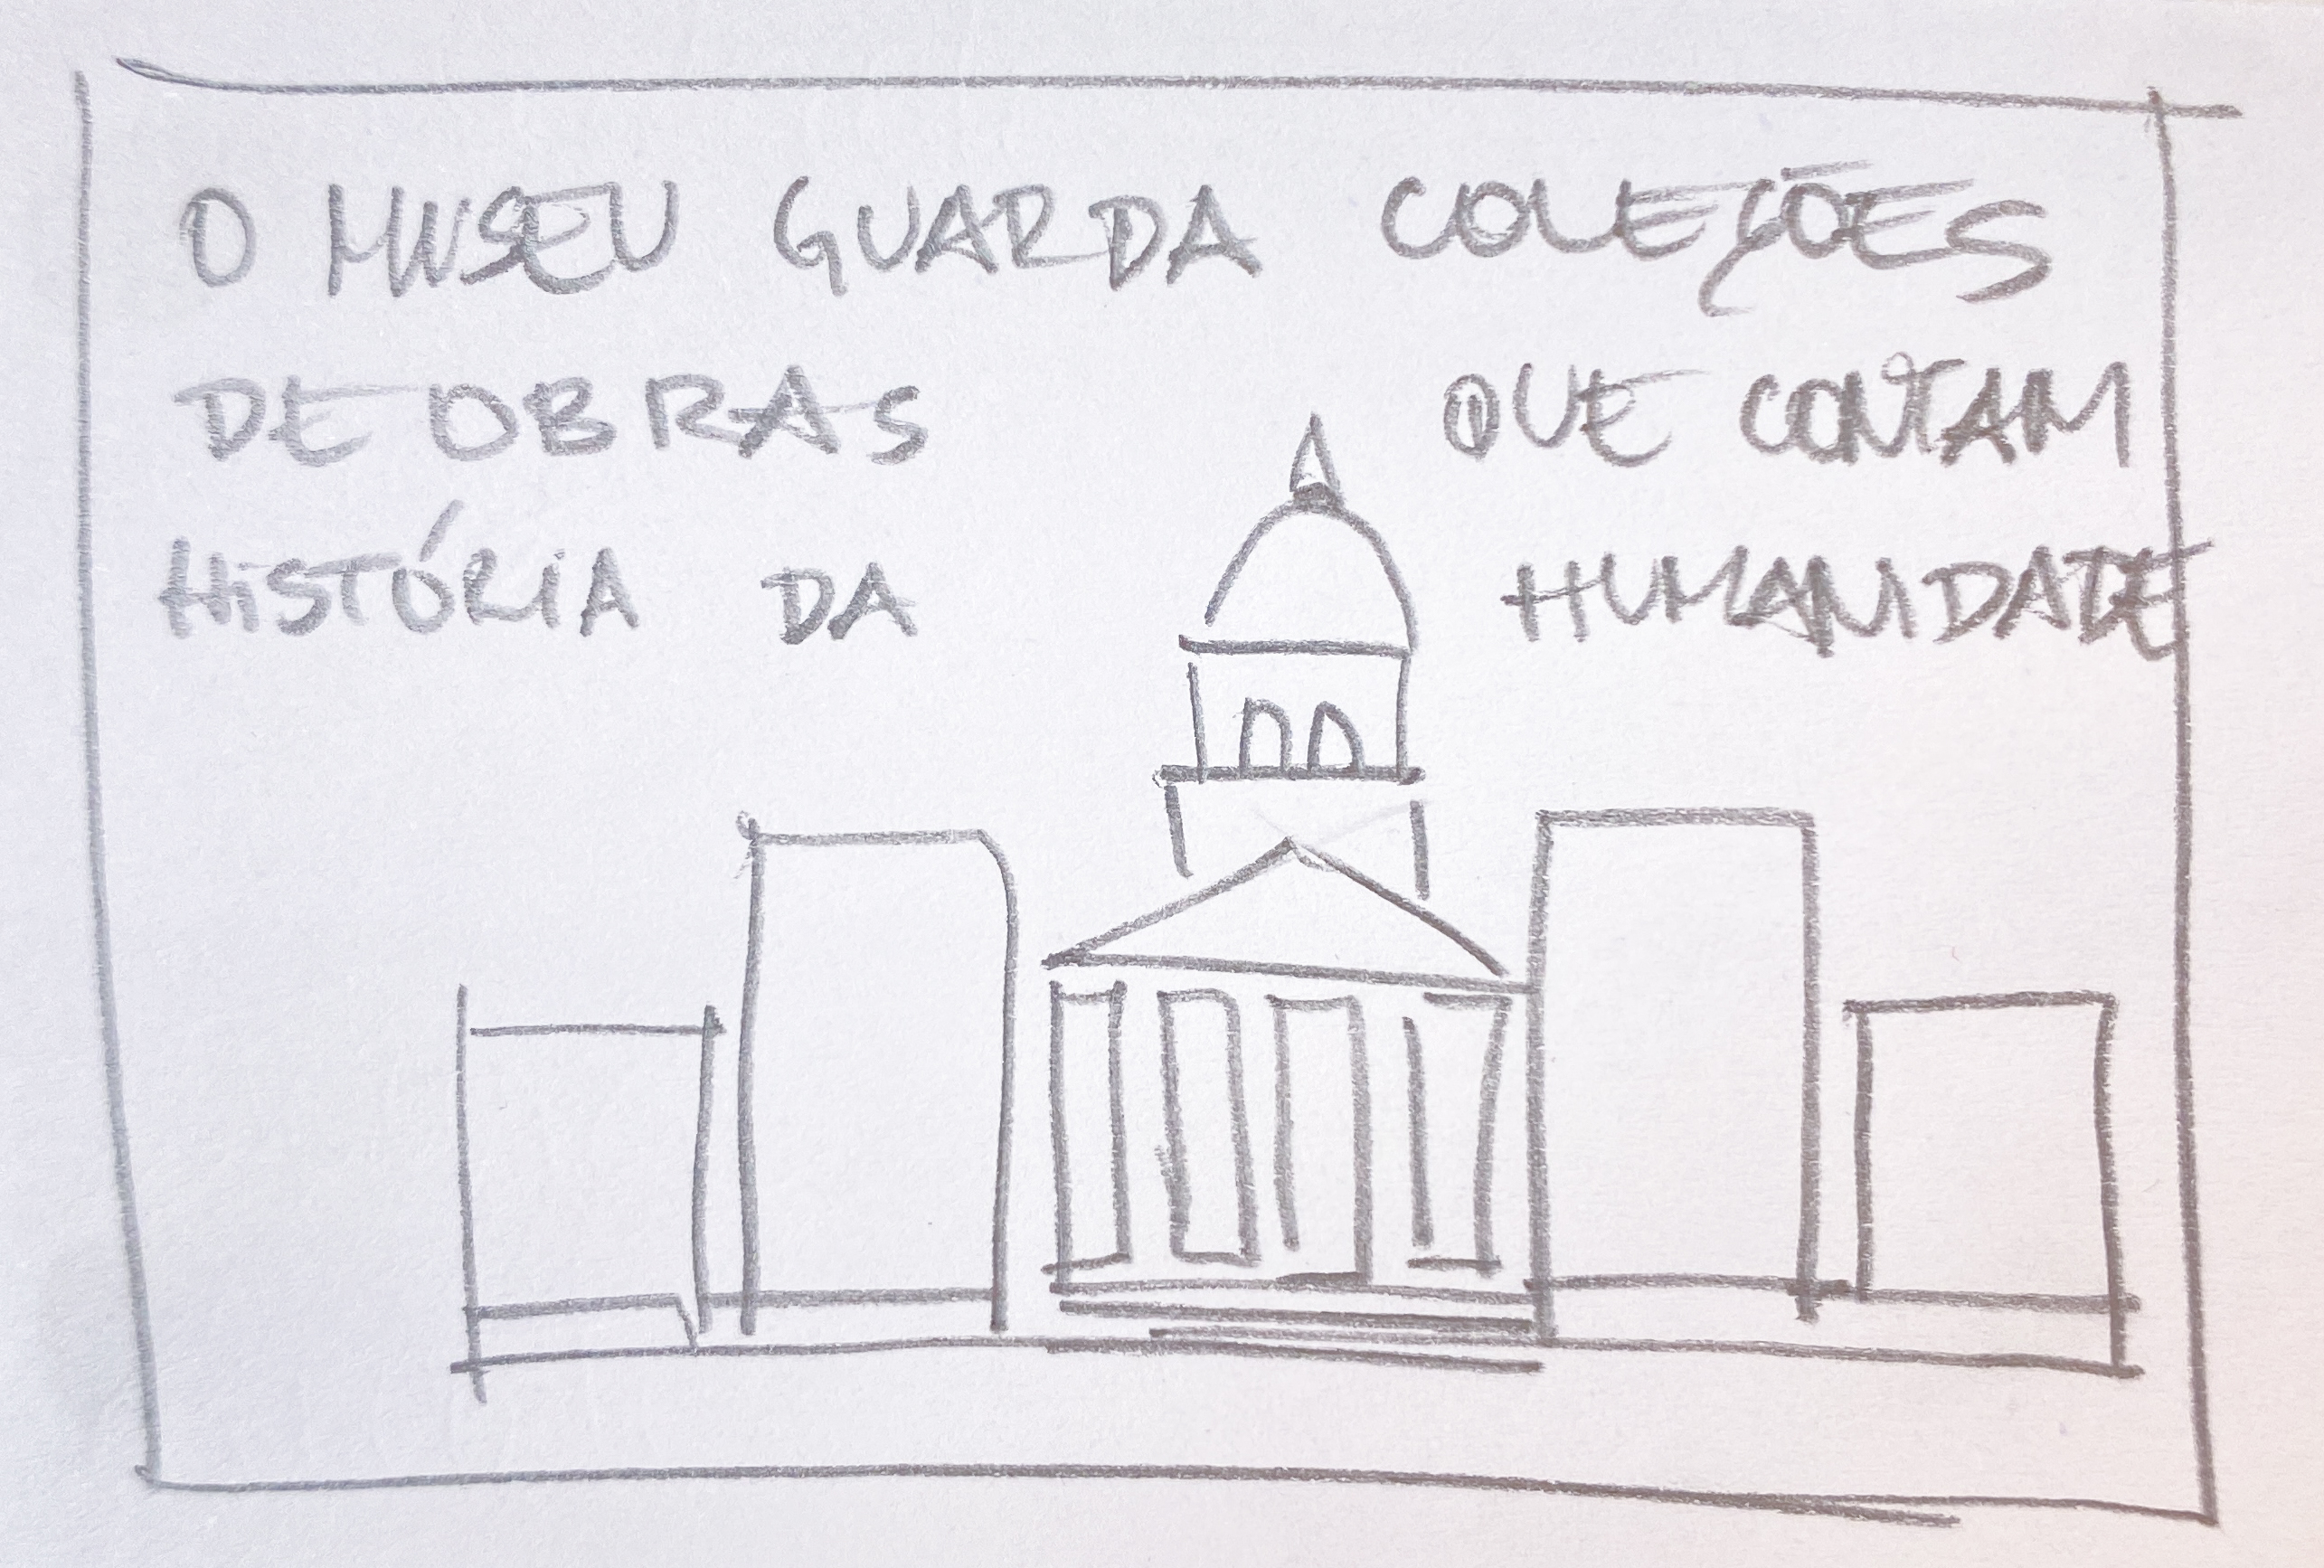 O MUSEU GUARDA COLEÇÕES
DE OBRAS QUE CONTAM
HISTÓRIA DA HUMANIDADE